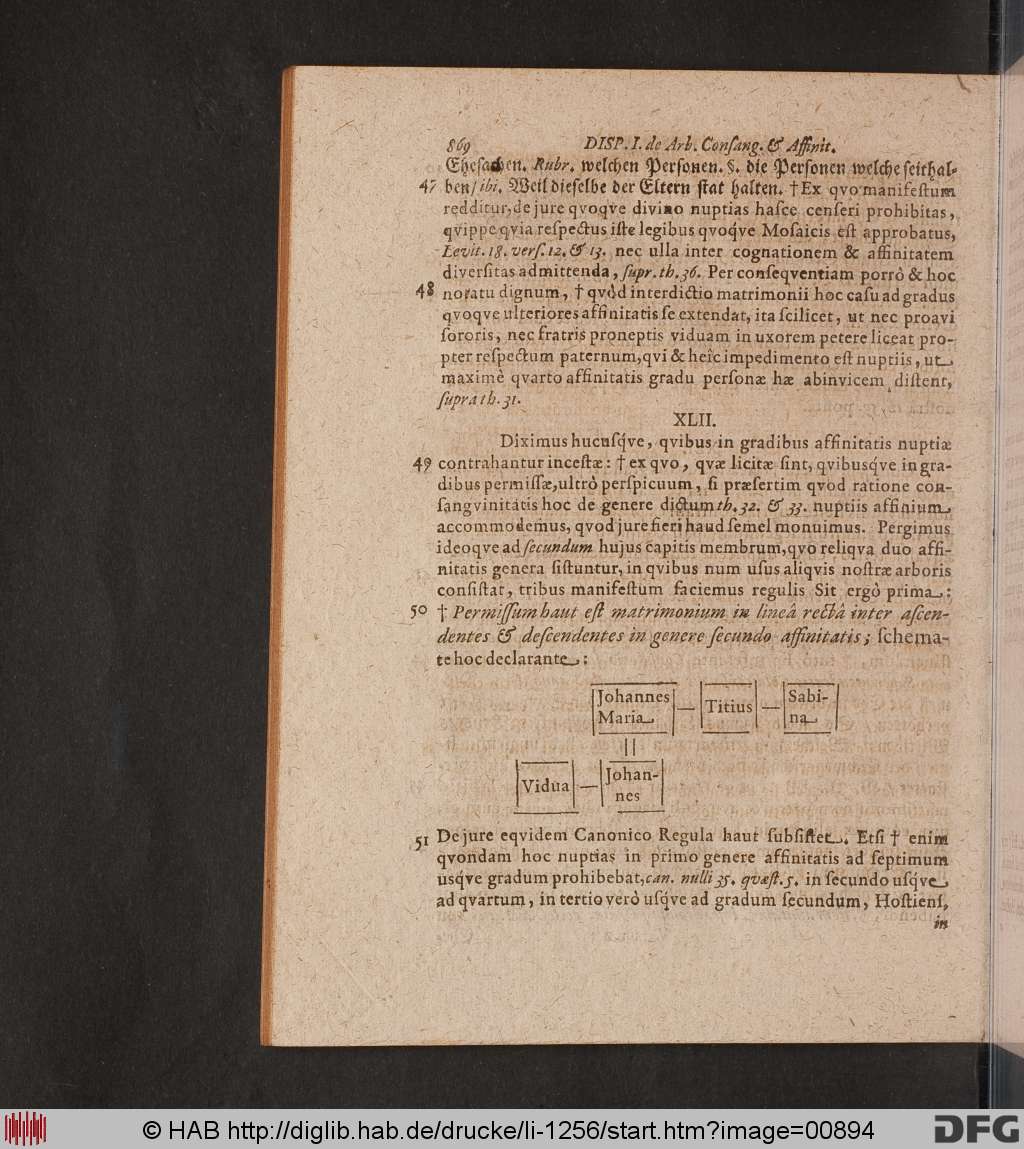 869 DISP. I. de Arb. Conſang. & Affinit.
Eheſachen. Rubr. welchen Perſonen. §. die Perſonen welche ſeithal-
47 ben/ ibi. Weil dieſelbe der Eltern ſtat halten. † Ex qvo manifeſtum
redditur, de jure qvoqve divino nuptias haſce cenſeri prohibitas,
qvippe qvia reſpectus iſte legibus qvoq́ve Moſaicis eſt approbatus,
Levit. 18. verſ. 12. & 13. nec ulla inter cognationem & affinitatem
diverſitas admittenda, ſupr. th. 36. Per conſeqventiam porrò & hoc
48 notatu dignum, † qvòd interdictio matrimonii hoc caſu ad gradus
qvoqve ulteriores affinitatis ſe extendat, ita ſcilicet, ut nec proavi
ſororis, nec fratris proneptis viduam in uxorem petere liceat pro-
pter reſpectum paternum, qvi & heîc impedimento eſt nuptiis, ut
maximè qvarto affinitatis gradu perſonæ hæ abinvicem diſtent,
ſuprà th. 31.
XLII.
Diximus hucuſq́ve, qvibus in gradibus affinitatis nuptiæ
49 contrahantur inceſtæ: † ex qvo, qvæ licitæ ſint, qvibusq́ve in gra-
dibus permiſſæ, ultrò perſpicuum, ſi præſertim qvod ratione con-
ſangvinitatis hoc de genere dictum th. 32. & 33. nuptiis affinium
accommodemus, qvod jure fieri haud ſemel monuimus. Pergimus
ideoqve ad ſecundum hujus capitis membrum, qvo reliqva duo affi-
nitatis genera ſiſtuntur, in qvibus num uſus aliqvis noſtræ arboris
conſiſtat, tribus manifeſtum faciemus regulis Sit ergò prima:
50 † Permiſſum haut eſt matrimonium in lineâ rectâ inter aſcen-
dentes & deſcendentes in genere ſecundo affinitatis; ſchema-
te hoc declarante:
Johannes Maria — Titius — Sabi-
na
||
Vidua — Johan-
nes
51 De jure eqvidem Canonico Regula haut ſubſiſtet. Etſi † enim
qvondam hoc nuptias in primo genere affinitatis ad ſeptimum
usq́ve gradum prohibebat, can. nulli 35. qvæſt. 5. in ſecundo uſq́ve
ad qvartum, in tertio verò uſq́ve ad gradum ſecundum, Hoſtienſ.
in
© HAB http://diglib.hab.de/drucke/li-1256/start.htm?image=00894
DFG